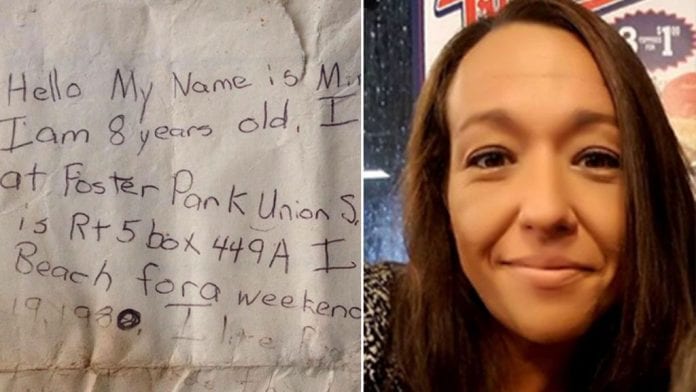 Hello My Name is Mi
I am 8 years old. I
at Foster Park Union S.
is Rt 5 box 449A I
Beach for a weekend
19, 198 . I like
$1